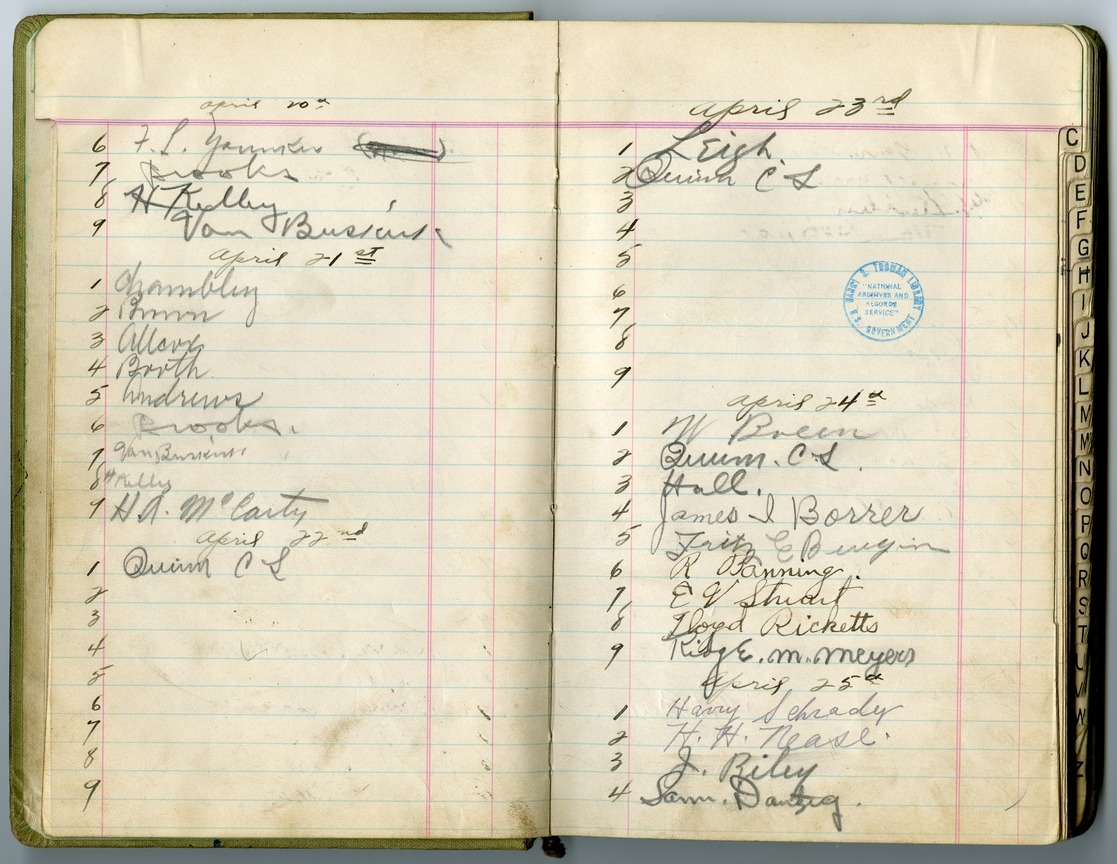 april 20th
6 F. L. Younker
7 Brooks
8 H Kelley
9 Van Buskirk
april 21st
1 Chambley
2 Brown
3 Allcox
4 Booth
5 Andrews
6 Brooks.
7 Van Buskirk
8 H Kelly
9 H. A. McCarty
april 22nd
1 Quinn C L
2
3
4
5
6
7
8
9
april 23rd
1 Leigh.
2 Quinn C L
3
4
5
6
7
8
9
HARRY S. TRUMAN LIBRARY
"NATIONAL
ARCHIVES AND
RECORDS
SERVICE"
U.S. GOVERNMENT
april 24th
1 W Breen
2 Quinn. C L.
3 Hall.
4 James I Borrer
5 Fritz E
6 R Banning.
7 E V Stuart
8 Floyd Ricketts
9 E. M. Meyers
april 25th
1 Harry Schrady
2 H. H. Nease.
3 J. Riley
4 Sam. Dantzig.
C
D
E
F
G
H
I
J
K
L
M
M
N
O
P
Q
R
S
T
U
V
W
Z